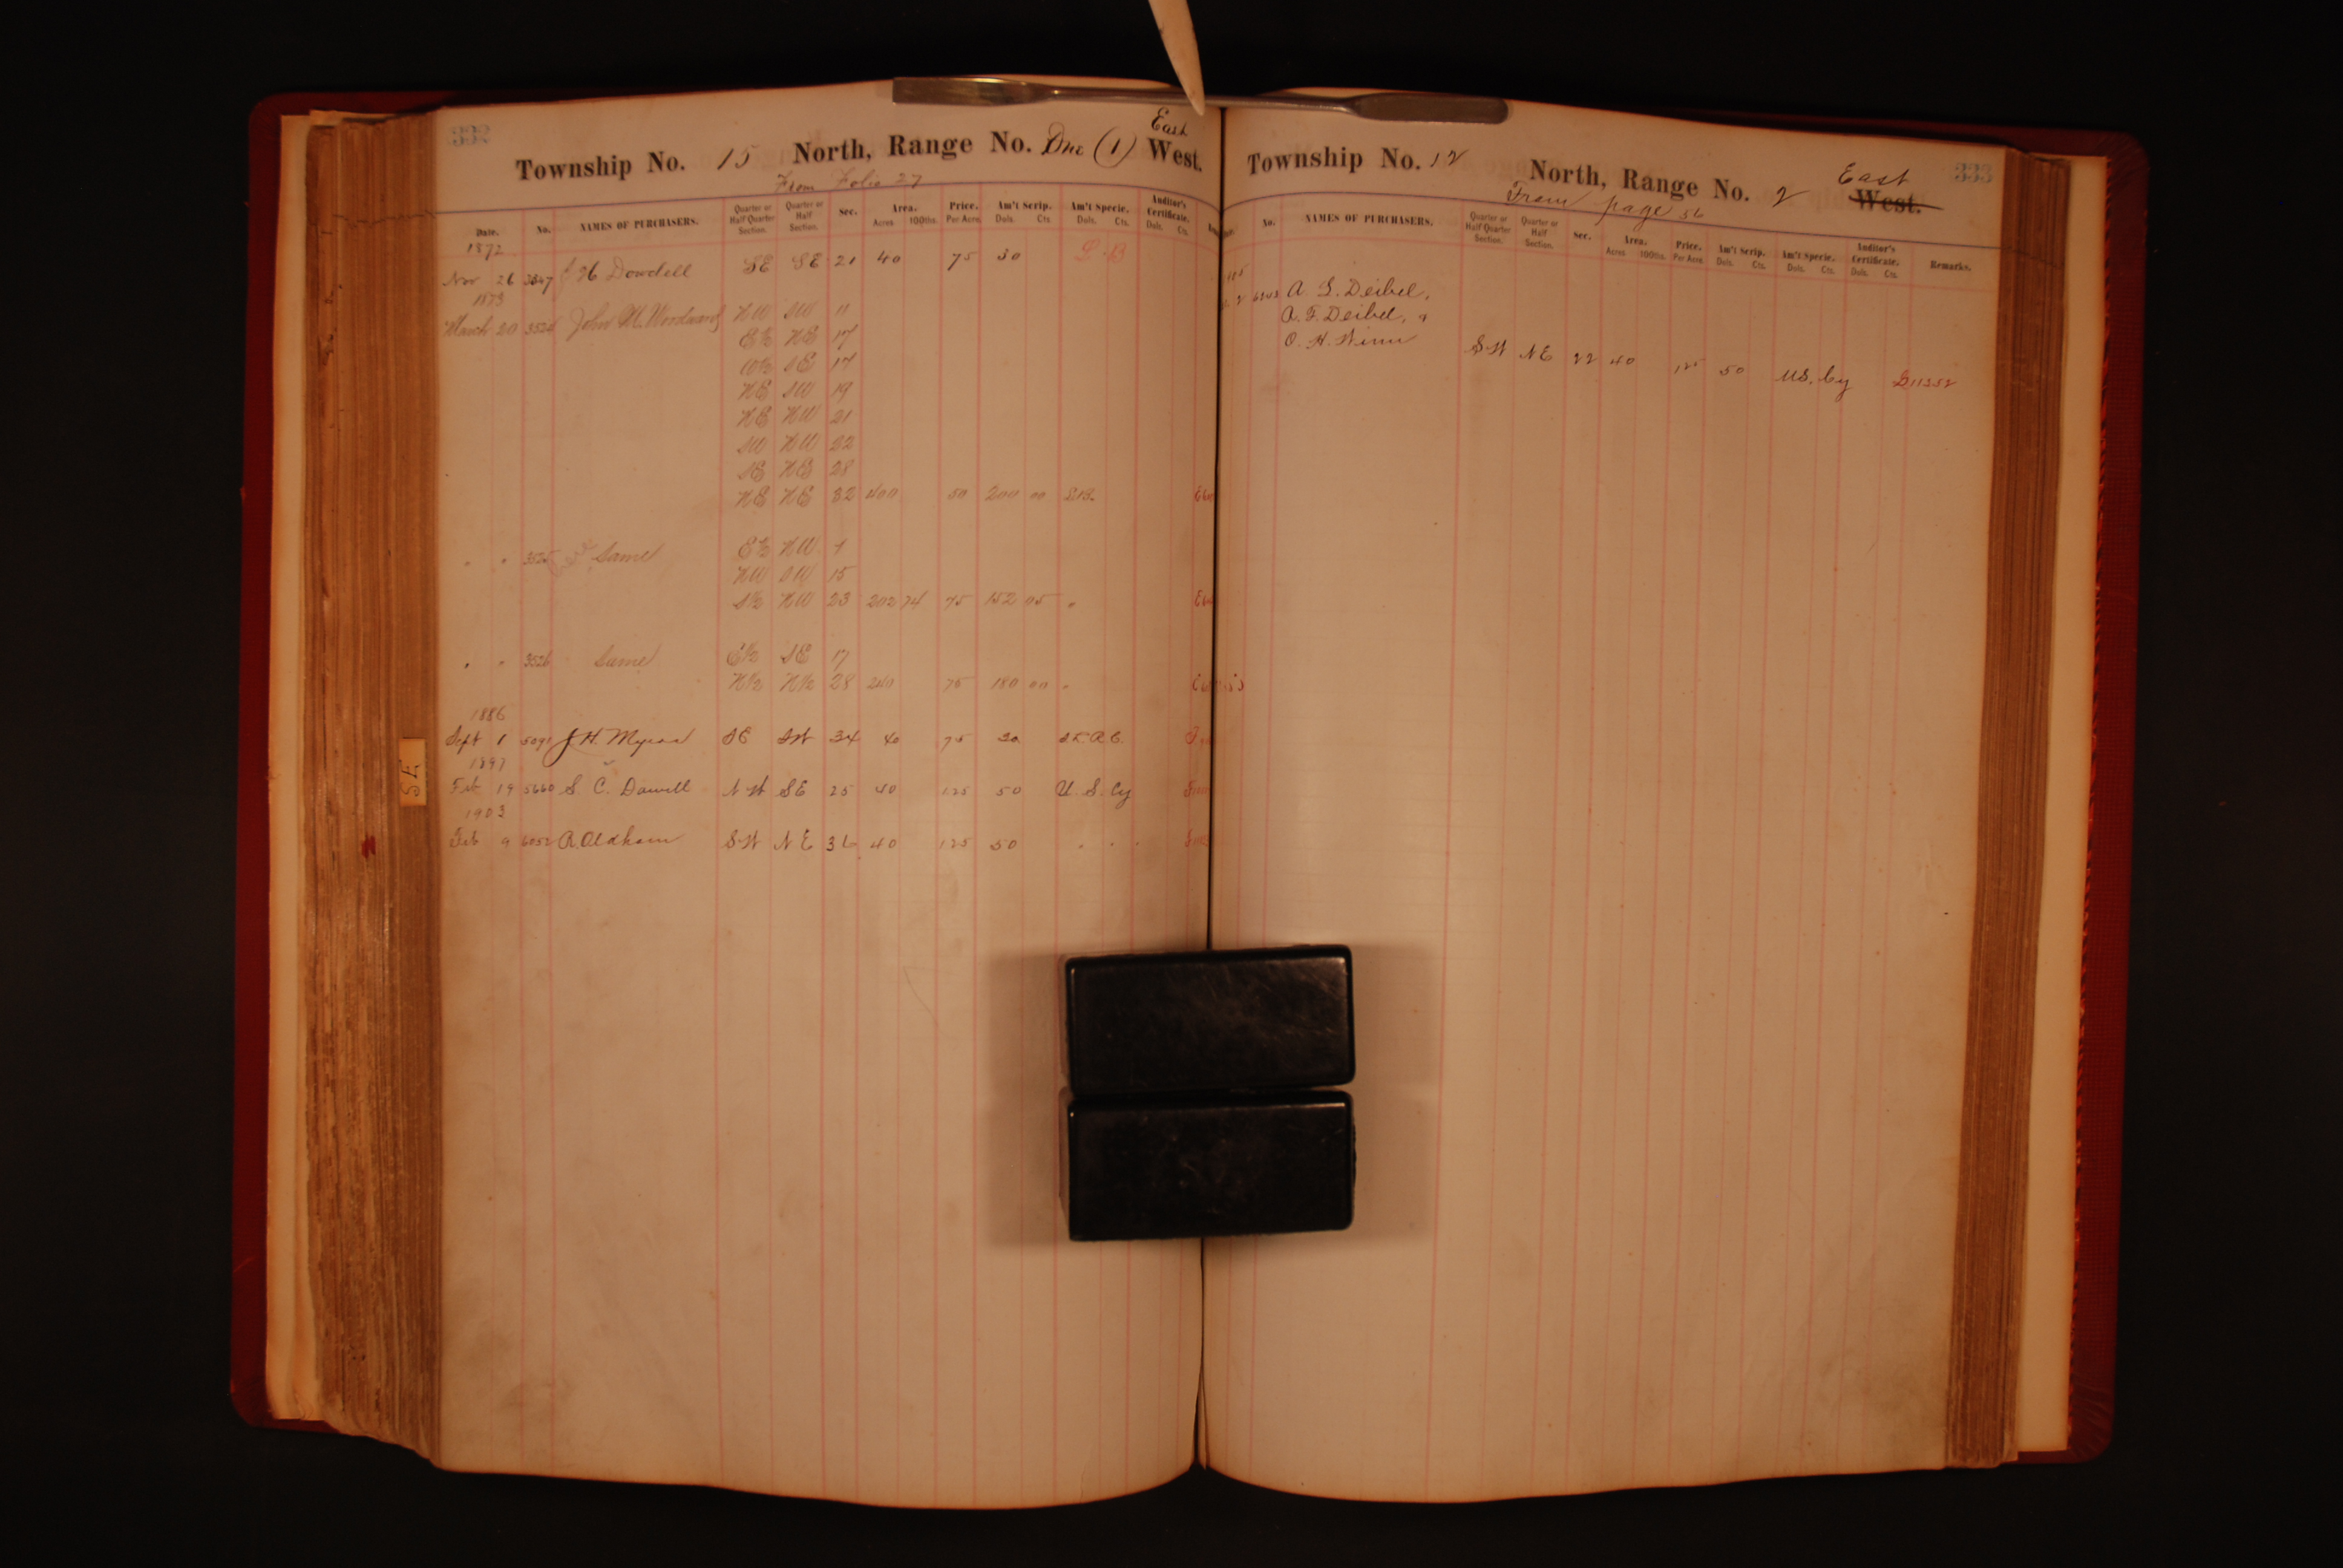 332
East
Township No. 15 North, Range No. One (1) West.
From Folio 27
Date. No. NAMES OF PURCHASERS. Quarter or Half Quarter Section. Quarter or Half Section. Sec. Area. Acres 100ths. Price. Per Acre. Am't Scrip. Dols. Cts Am't Specie. Dols. Cts. Auditor's Certificate. Dols. Cts.
1872
Nov 26 Dowdell SE SE 21 40 75 30 L.B
1873
March 20 3524 John M. Woodward NW SW 11
E½ NE 17
W½ SE 17
NE SW 19
NE NW 21
SW NW 22
SE NE 28
NE NE 32 400 50 200 00 L.B.
" " 3525 Same E½ NW 1
NW SW 15
S½ NW 23 202 74 75 152 05 "
" " 3526 Same E½ SE 17
N½ N½ 28 240 75 180 00 "
1886
Sept 1 5091 J H. SE SW 34 40 75 30
1897
Feb 19 5660 S. C. Dowell NW SE 25 40 125 50 U.S. Cy
1903
Feb 9 6052 R. Oldham SW NE 36 40 125 50 " " "
SE
333
Township No. 12 North, Range No. 2 East West.
From page 56
No. NAMES OF PURCHASERS. Quarter or Half Quarter Section. Quarter or Half Section. Sec. Area. Acres 100ths. Price. Per Acre Am't Scrip. Dols. Cts. Am't Specie. Dols. Cts. Auditor's Certificate. Dols. Cts. Remarks.
A. L. Deibel,
A. F. Deibel, &
O. H. Winn
SW NE 22 40 125 50 U.S. Cy